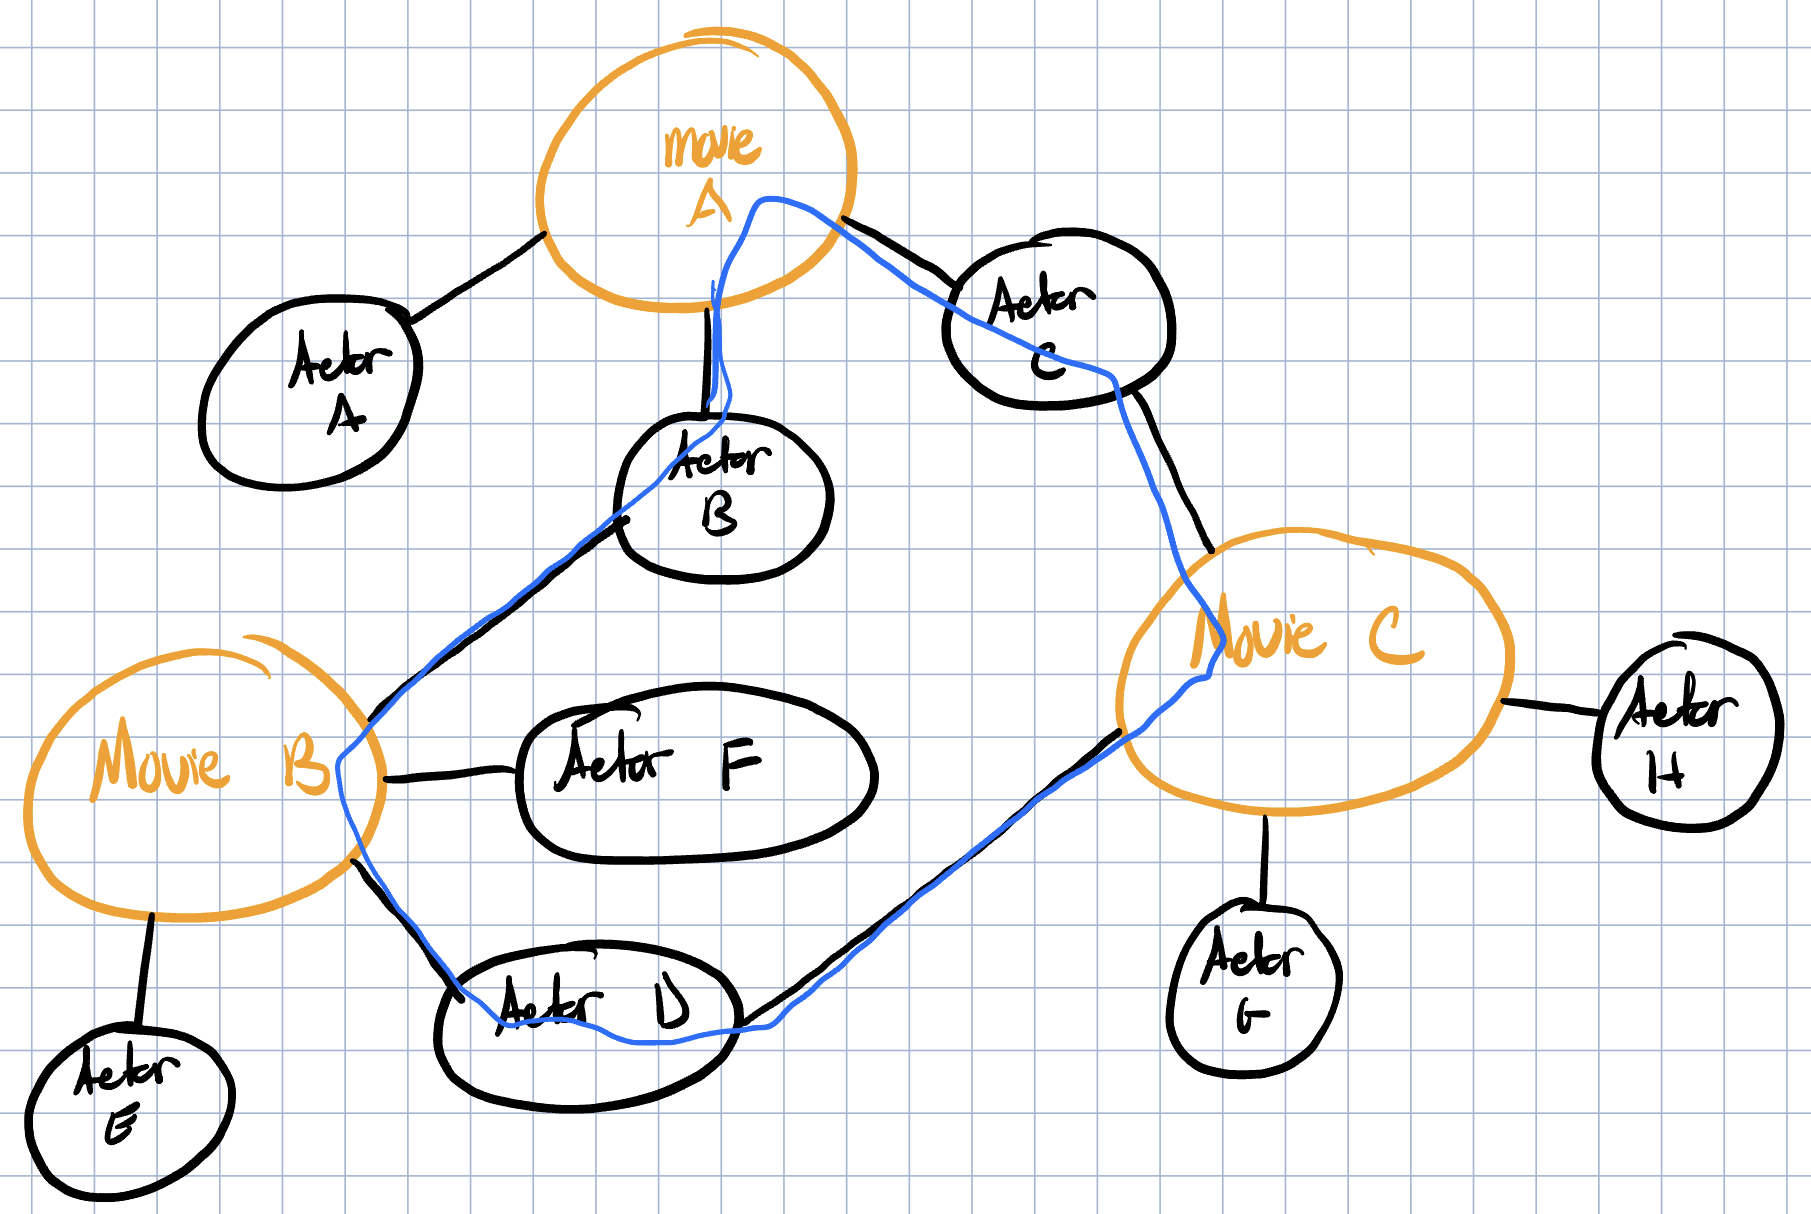 movie
A
Actor
C
Actor
A
Actor
B
Movie C
Actor
H
Movie B
Actor F
Actor D
Actor
G
Actor
E